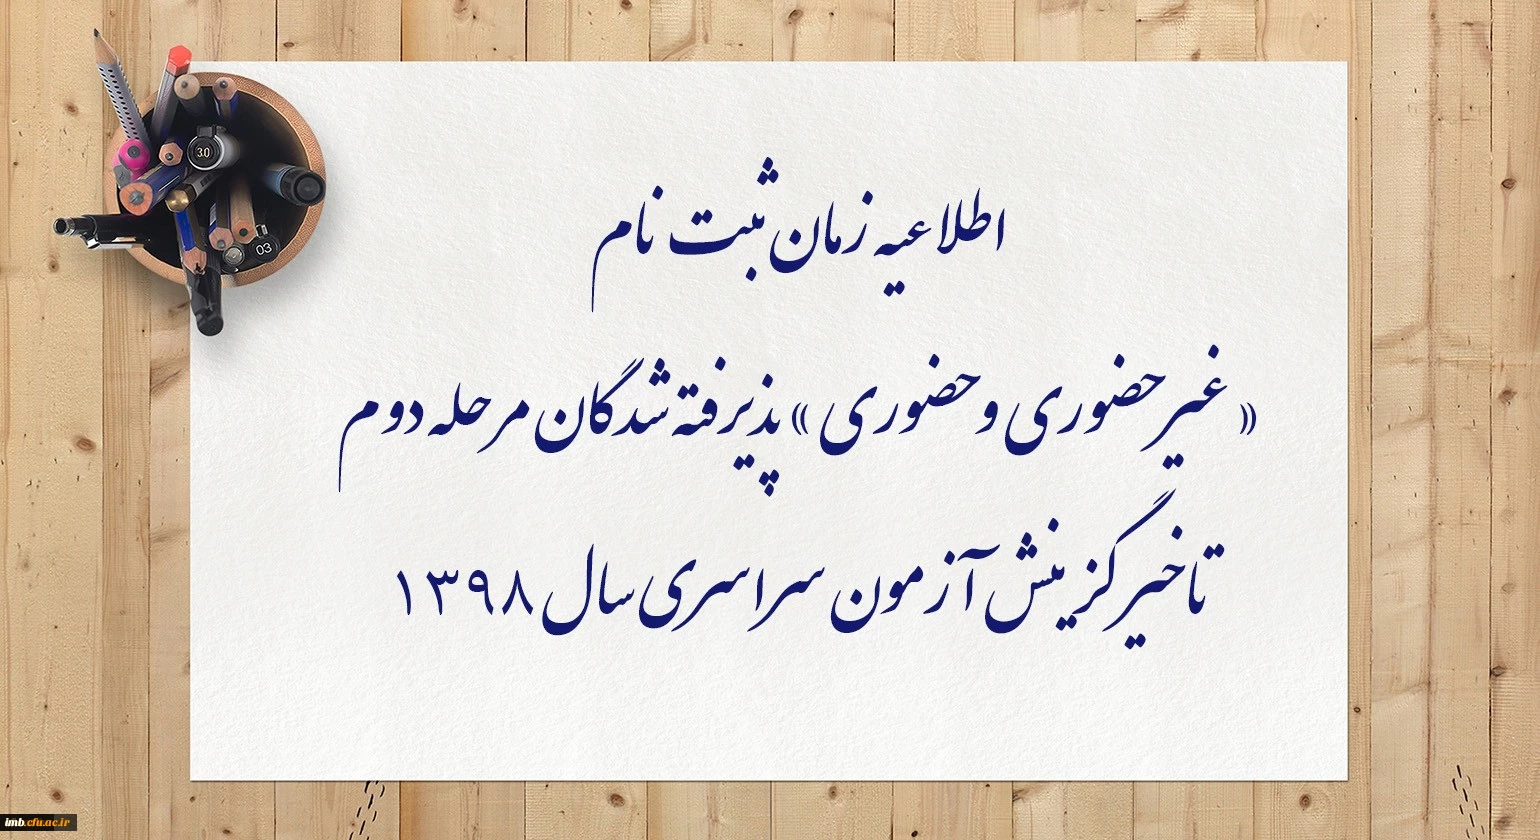 اطلاعیه زمان ثبت نام
« غیرحضوری و حضوری » پذیرفته شدگان مرحله دوم
تاخیر گزینش آزمون سراسری سال ۱۳۹۸
3.0
03
imb.cfu.ac.ir